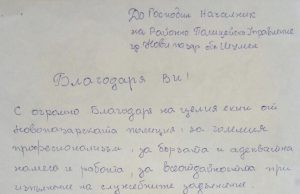 До Господин Началник
на Районно Полицейско Управление
гр Нови пазар обл Шумен
Благодаря Ви!
С огромно Благодаря на целия екип от
Новопазарската полиция, за големия
професионализъм, за бързата и адекватна
намеса и работа, за всеотдайността при
изпълнение на служебните задължения.